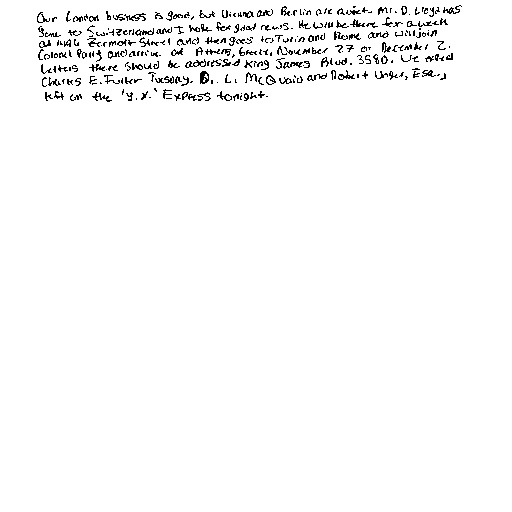 Our London business is good, but Vienna and Berlin are quiet. Mr. D. Lloyd has
gone to Switzerland and I hope for good news. He will be there for a week
at 1496 Zermott Street and then goes to Turin and Rome and will join
Colonel Parry and arrive at Athens, Greece, November 27 or December 2.
Letters there should be addressed King James Blvd. 3580. We expect
Charles E. Fuller Tuesday. Dr. L. McQuaid and Robert Unger, Esq.,
left on the 'Y.X.' Express tonight.